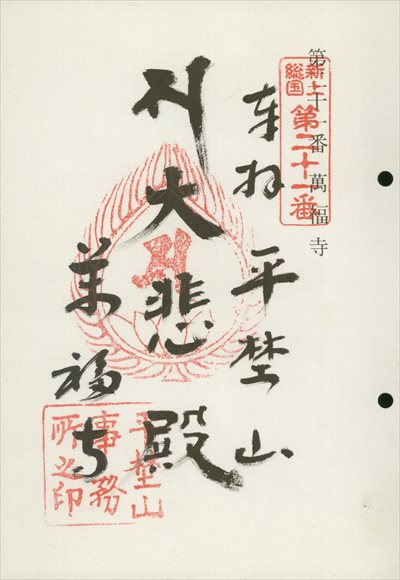 第二十一番 萬福寺
新上総国
第二十一番
奉拝 平埜山
大悲殿
萬福寺
平埜山
事務
所之印